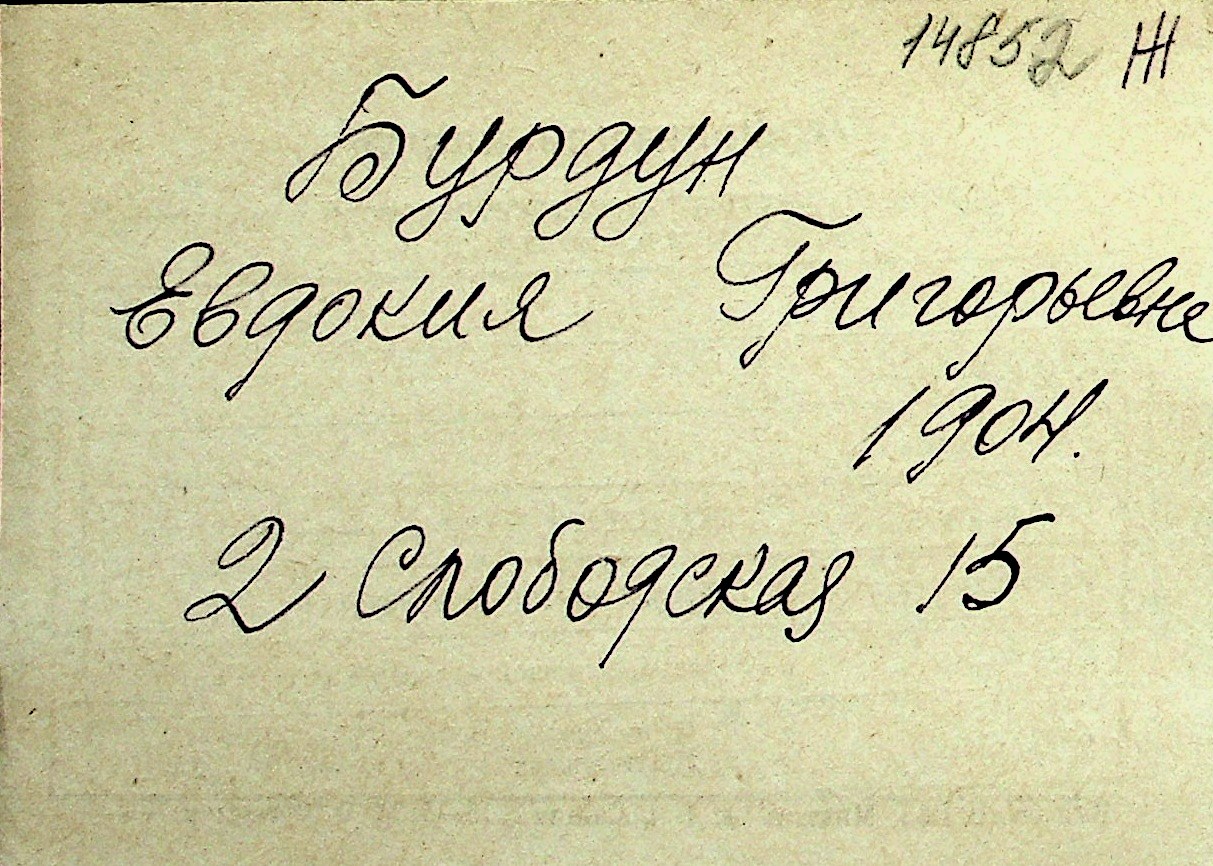 14852 Ж
Бурдун
Евдокия Григорьевна
1904.
2 Слободская 15